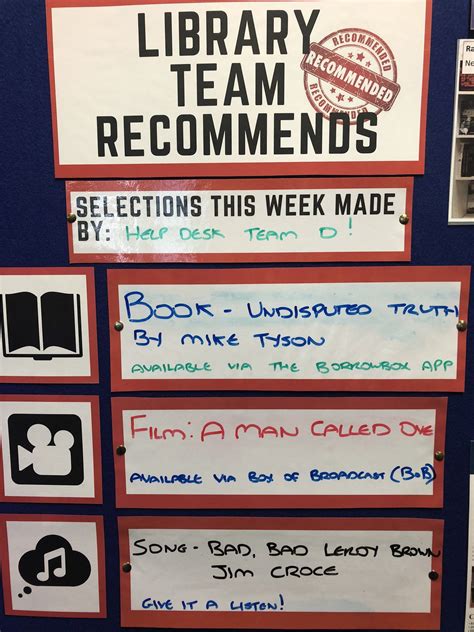 LIBRARY
TEAM
RECOMMENDS
RECOMMENDED
RECOMMENDED
RECOMMENDED
SELECTIONS THIS WEEK MADE
BY: HELP DESK TEAM D!
BOOK - UNDISPUTED TRUTH
BY MIKE TYSON
AVAILABLE VIA THE BORROWBOX APP
FILM: A MAN CALLED OVE
AVAILABLE VIA BOX OF BROADCAST (BoB)
SONG - BAD, BAD LEROY BROWN
JIM CROCE
GIVE IT A LISTEN!